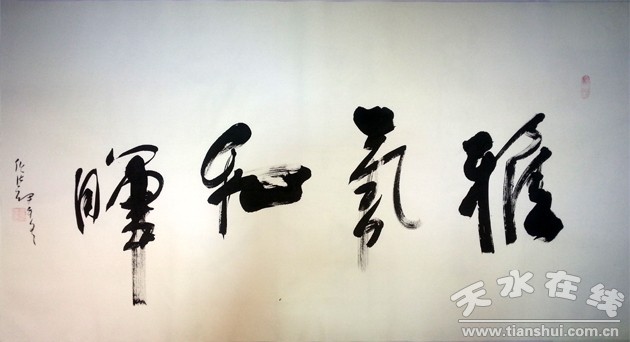 雅氣和暉
天水在线
www.tianshui.com.cn